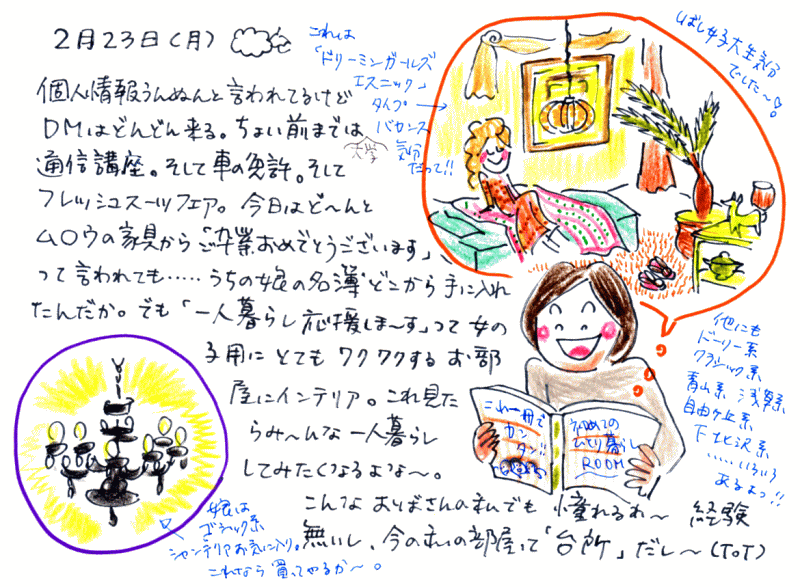 2月23日(月)
個人情報うんぬんと言われてるけど
DMはどんどん来る。ちょい前までは大学
通信講座。そして車の免許。そして
フレッシュスーツフェア。今日はど〜んと
ムロウの家具から「ご卒業おめでとうございます」、
って言われても‥‥‥うちの娘の名簿どこから手に入れ
たんだか。でも「一人暮らし応援しま〜す」って女の
子用にとてもワクワクするお部
屋にインテリア。これ見た
らみ〜んな一人暮らし
してみたくなるよな〜。
こんなおばさんの私でも憧れるわ〜 経験
無いし、今の私の部屋って「台所」だし〜(ToT)
これは
「ドリーミンガールズ
エスニック」
タイプ→
バカンス
気分
だって!!
しばし女子大生気分
でした〜♡
これ一冊で
カン
タン!!
初めての
ひとり暮らし
ROOM
他にも
ドーリー系
クラシック系
青山系 浅草系
自由ヶ丘系
下北沢系
‥‥‥いろいろ
あるよっ!!
娘は
ゴシック系
シャンデリアお気に入り。
これなら買ってやるか〜。